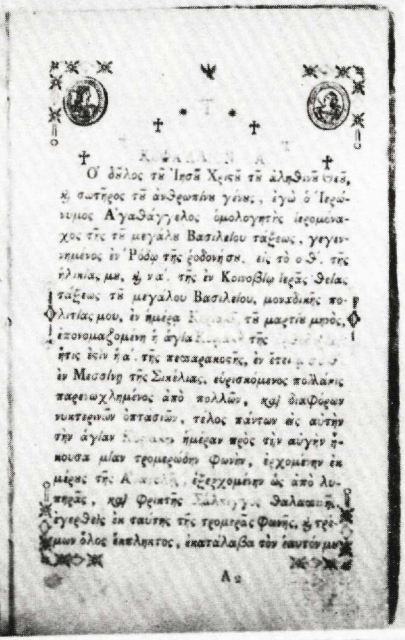 ΚΕΦΑΛΑΙΟΝ Α
Ο' δῦλος τῦ Ἰησῦ Χριςῦ τῦ ἀληθινῦ Θεῦ,
ϗ σωτῆρος τῦ ἀνθρωπίνυ γένυς, ἐγὼ ὁ Ἱερώ-
νυμος Ἀγαθάγγελος ὁμολογητὴς ἱερομόνα-
χος τῆς τῦ μεγάλυ Βασιλείου τάξεως, γεγεν-
νημένος ἐν Ῥόδῳ τῆς ῥοδονήσυ. εἰς τὸ οθ'. τῆς
ἡλικίας μυ, ϗ να'. τῆς ἐν Κοινοβίῳ ἱερᾶς θείας
τάξεως τῦ μεγάλου Βασιλείου, μοναδικῆς πο-
λιτίας μου, ἐν ἡμέρᾳ Κυριακῇ τῦ μαρτίυ μηνὸς,
ἐπονομαζομένη ἡ ἁγία Κυριακὴ τῆς
ἥτις ἐςὶν ἡ α'. τῆς τεσσαρακοςῆς, ἐν ἔτει
ἐν Μεσσίνῃ τῆς Σικελίας, εὑρισκόμενος πολλάκις
παρενωχλημένος ἀπὸ πολλῶν, καὶ διαφόρων
νυκτερινῶν ὀπτασιῶν, τέλος πάντων εἰς αὐτὴν
τὴν ἁγίαν Κυριακὴν ἡμέραν πρὸς τὴν αὐγὴν ἤ-
κουσα μίαν τρομερώδη φωνὴν, ἐρχομένην ἐκ
μέρυς τῆς Ἀνατολῆς, ἐξερχομένην ὡς ἀπὸ λυ-
πηρᾶς, καὶ φρικτῆς Σάλπιγγος
ἐγερθεὶς ἐκ ταύτης τῆς τρομερᾶς φωνῆς, ϗ τρέ-
μων ὅλος ἔκπληκτος, ἐκατάλαβα τὸν ἑαυτόν μυ
Α 2